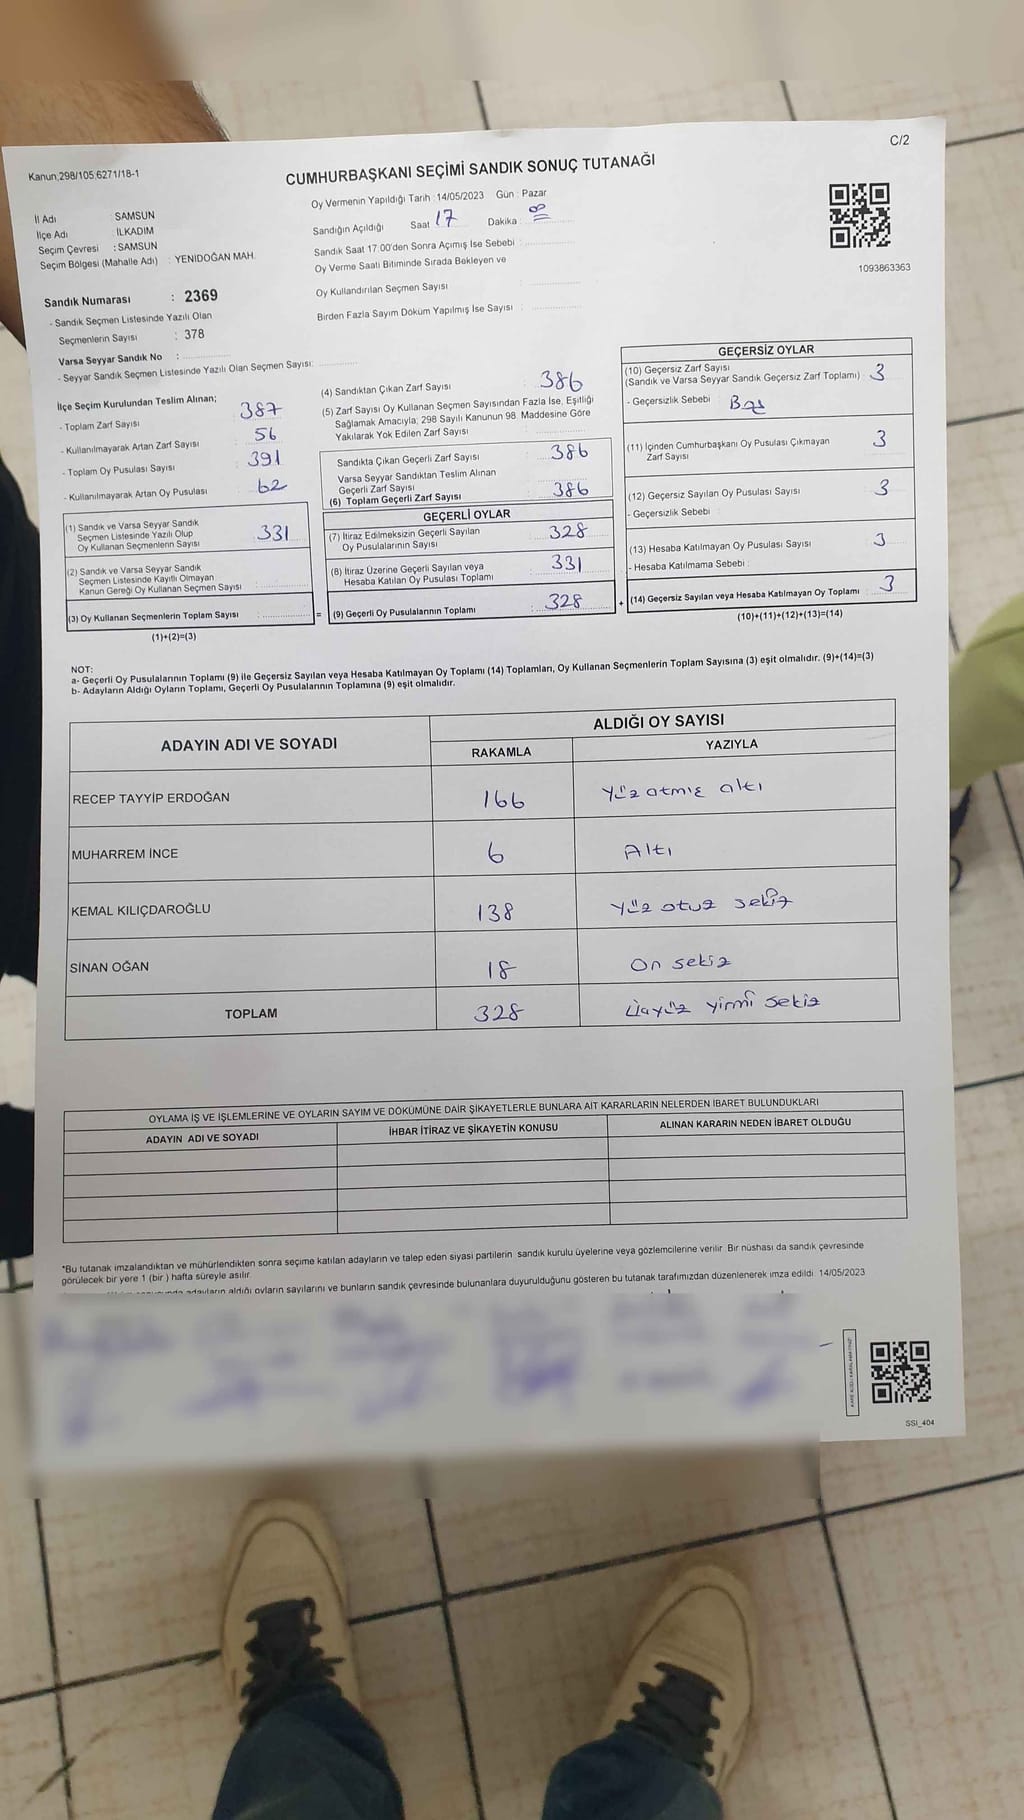 C/2
Kanun,298/105,6271/18-1
CUMHURBAŞKANI SEÇİMİ SANDIK SONUÇ TUTANAĞI
Oy Vermenin Yapıldığı Tarih : 14/05/2023 Gün : Pazar
İl Adı : SAMSUN
İlçe Adı : İLKADIM
Seçim Çevresi : SAMSUN
Seçim Bölgesi (Mahalle Adı) : YENİDOĞAN MAH.
Sandığın Açıldığı Saat 17 Dakika :
Sandık Saat 17.00'den Sonra Açımış İse Sebebi :
Oy Verme Saati Bitiminde Sırada Bekleyen ve
Oy Kullandırılan Seçmen Sayısı :
Birden Fazla Sayım Döküm Yapılmış İse Sayısı :
1093863363
Sandık Numarası : 2369
- Sandık Seçmen Listesinde Yazılı Olan
Seçmenlerin Sayısı : 378
Varsa Seyyar Sandık No :
- Seyyar Sandık Seçmen Listesinde Yazılı Olan Seçmen Sayısı:
İlçe Seçim Kurulundan Teslim Alınan;
- Toplam Zarf Sayısı : 387
- Kullanılmayarak Artan Zarf Sayısı : 56
- Toplam Oy Pusulası Sayısı : 391
- Kullanılmayarak Artan Oy Pusulası : 62
(1) Sandık ve Varsa Seyyar Sandık
Seçmen Listesinde Yazılı Olup
Oy Kullanan Seçmenlerin Sayısı : 331
(2) Sandık ve Varsa Seyyar Sandık
Seçmen Listesinde Kayıtlı Olmayan
Kanun Gereği Oy Kullanan Seçmen Sayısı :
(3) Oy Kullanan Seçmenlerin Toplam Sayısı :
(1)+(2)=(3)
(4) Sandıktan Çıkan Zarf Sayısı : 386
(5) Zarf Sayısı Oy Kullanan Seçmen Sayısından Fazla İse, Eşitliği
Sağlamak Amacıyla; 298 Sayılı Kanunun 98. Maddesine Göre
Yakılarak Yok Edilen Zarf Sayısı :
Sandıkta Çıkan Geçerli Zarf Sayısı : 386
Varsa Seyyar Sandıktan Teslim Alınan
Geçerli Zarf Sayısı :
(6) Toplam Geçerli Zarf Sayısı : 386
GEÇERLİ OYLAR
(7) İtiraz Edilmeksizin Geçerli Sayılan
Oy Pusulalarının Sayısı : 328
(8) İtiraz Üzerine Geçerli Sayılan veya
Hesaba Katılan Oy Pusulası Toplamı : 331
= (9) Geçerli Oy Pusulalarının Toplamı : 328
GEÇERSİZ OYLAR
(10) Geçersiz Zarf Sayısı
(Sandık ve Varsa Seyyar Sandık Geçersiz Zarf Toplamı) : 3
- Geçersizlik Sebebi : Boş
(11) İçinden Cumhurbaşkanı Oy Pusulası Çıkmayan
Zarf Sayısı : 3
(12) Geçersiz Sayılan Oy Pusulası Sayısı : 3
- Geçersizlik Sebebi :
(13) Hesaba Katılmayan Oy Pusulası Sayısı : 3
- Hesaba Katılmama Sebebi :
+ (14) Geçersiz Sayılan veya Hesaba Katılmayan Oy Toplamı : 3
(10)+(11)+(12)+(13)=(14)
NOT:
a- Geçerli Oy Pusulalarının Toplamı (9) ile Geçersiz Sayılan veya Hesaba Katılmayan Oy Toplamı (14) Toplamları, Oy Kullanan Seçmenlerin Toplam Sayısına (3) eşit olmalıdır. (9)+(14)=(3)
b- Adayların Aldığı Oyların Toplamı, Geçerli Oy Pusulalarının Toplamına (9) eşit olmalıdır.
ADAYIN ADI VE SOYADI
ALDIĞI OY SAYISI
RAKAMLA YAZIYLA
RECEP TAYYİP ERDOĞAN 166 Yüz atmış altı
MUHARREM İNCE 6 Altı
KEMAL KILIÇDAROĞLU 138 Yüz otuz sekiz
SİNAN OĞAN 18 On sekiz
TOPLAM 328 Üçyüz yirmi sekiz
OYLAMA İŞ VE İŞLEMLERİNE VE OYLARIN SAYIM VE DÖKÜMÜNE DAİR ŞİKAYETLERLE BUNLARA AİT KARARLARIN NELERDEN İBARET BULUNDUKLARI
ADAYIN ADI VE SOYADI İHBAR İTİRAZ VE ŞİKAYETİN KONUSU ALINAN KARARIN NEDEN İBARET OLDUĞU
*Bu tutanak imzalandıktan ve mühürlendikten sonra seçime katılan adayların ve talep eden siyasi partilerin sandık kurulu üyelerine veya gözlemcilerine verilir. Bir nüshası da sandık çevresinde
görülecek bir yere 1 (bir ) hafta süreyle asılır.
adayların aldığı oyların sayılarını ve bunların sandık çevresinde bulunanlara duyurulduğunu gösteren bu tutanak tarafımızdan düzenlenerek imza edildi. 14/05/2023
SSI_404